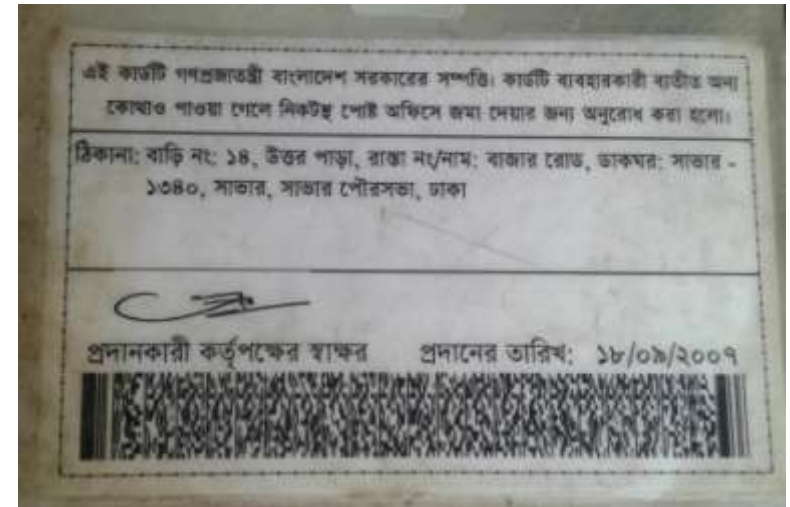 এই কার্ডটি গণপ্রজাতন্ত্রী বাংলাদেশ সরকারের সম্পত্তি। কার্ডটি ব্যবহারকারী ব্যতীত অন্য
কোথাও পাওয়া গেলে নিকটস্থ পোষ্ট অফিসে জমা দেয়ার জন্য অনুরোধ করা হলো।
ঠিকানা: বাড়ি নং: ১৪, উত্তর পাড়া, রাস্তা নং/নাম: বাজার রোড, ডাকঘর: সাভার -
১৩৪০, সাভার, সাভার পৌরসভা, ঢাকা
প্রদানকারী কর্তৃপক্ষের স্বাক্ষর প্রদানের তারিখ: ১৮/০৯/২০০৭